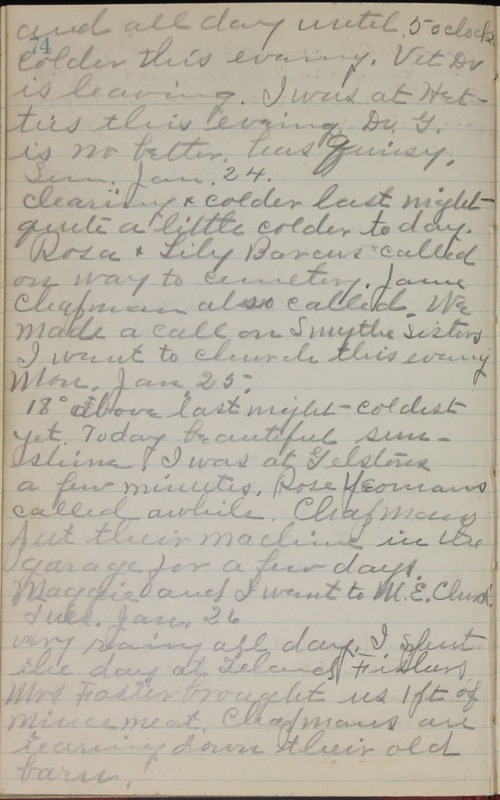 and all day until 5 oclock
74
colder this evening. Vet Dr
is leaving. I was at Het-
ties this evening Dr. G.
is no better, has Quinsy.
Sun. Jan. 24.
clearing & colder last night
quite a little colder today.
Rosa & Lily Barcus called
on way to cemetery. Jane
Chapman also called. We
made a call on Smythe Sisters
I went to church this evening
Mon. Jan. 25.
18° above last night - coldest
yet. Today beautiful sun-
shine. I was at
a few minutes. Rose Yeomans
called awhile. Chapmans
put their machine in the
garage for a few days.
Maggie and I went to M.E. Church
Tues. Jan. 26
very rainy all day. I spent
the day at
Mrs Foster brought us 1 pt of
mince meat. Chapmans are
tearing down their old
barn.